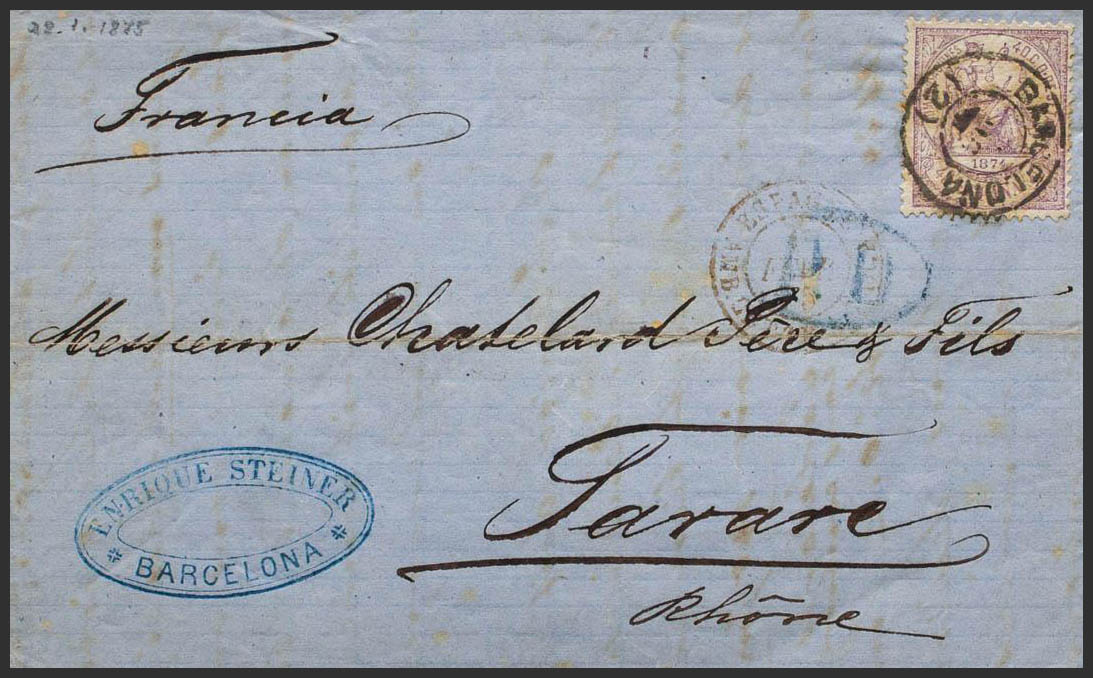 28.1.1875
Francia
40
BARCELONA
1874
ESPAG
PD
Messieurs Chatelard Père & Fils
Tarare
Rhône
ENRIQUE STEINER
BARCELONA